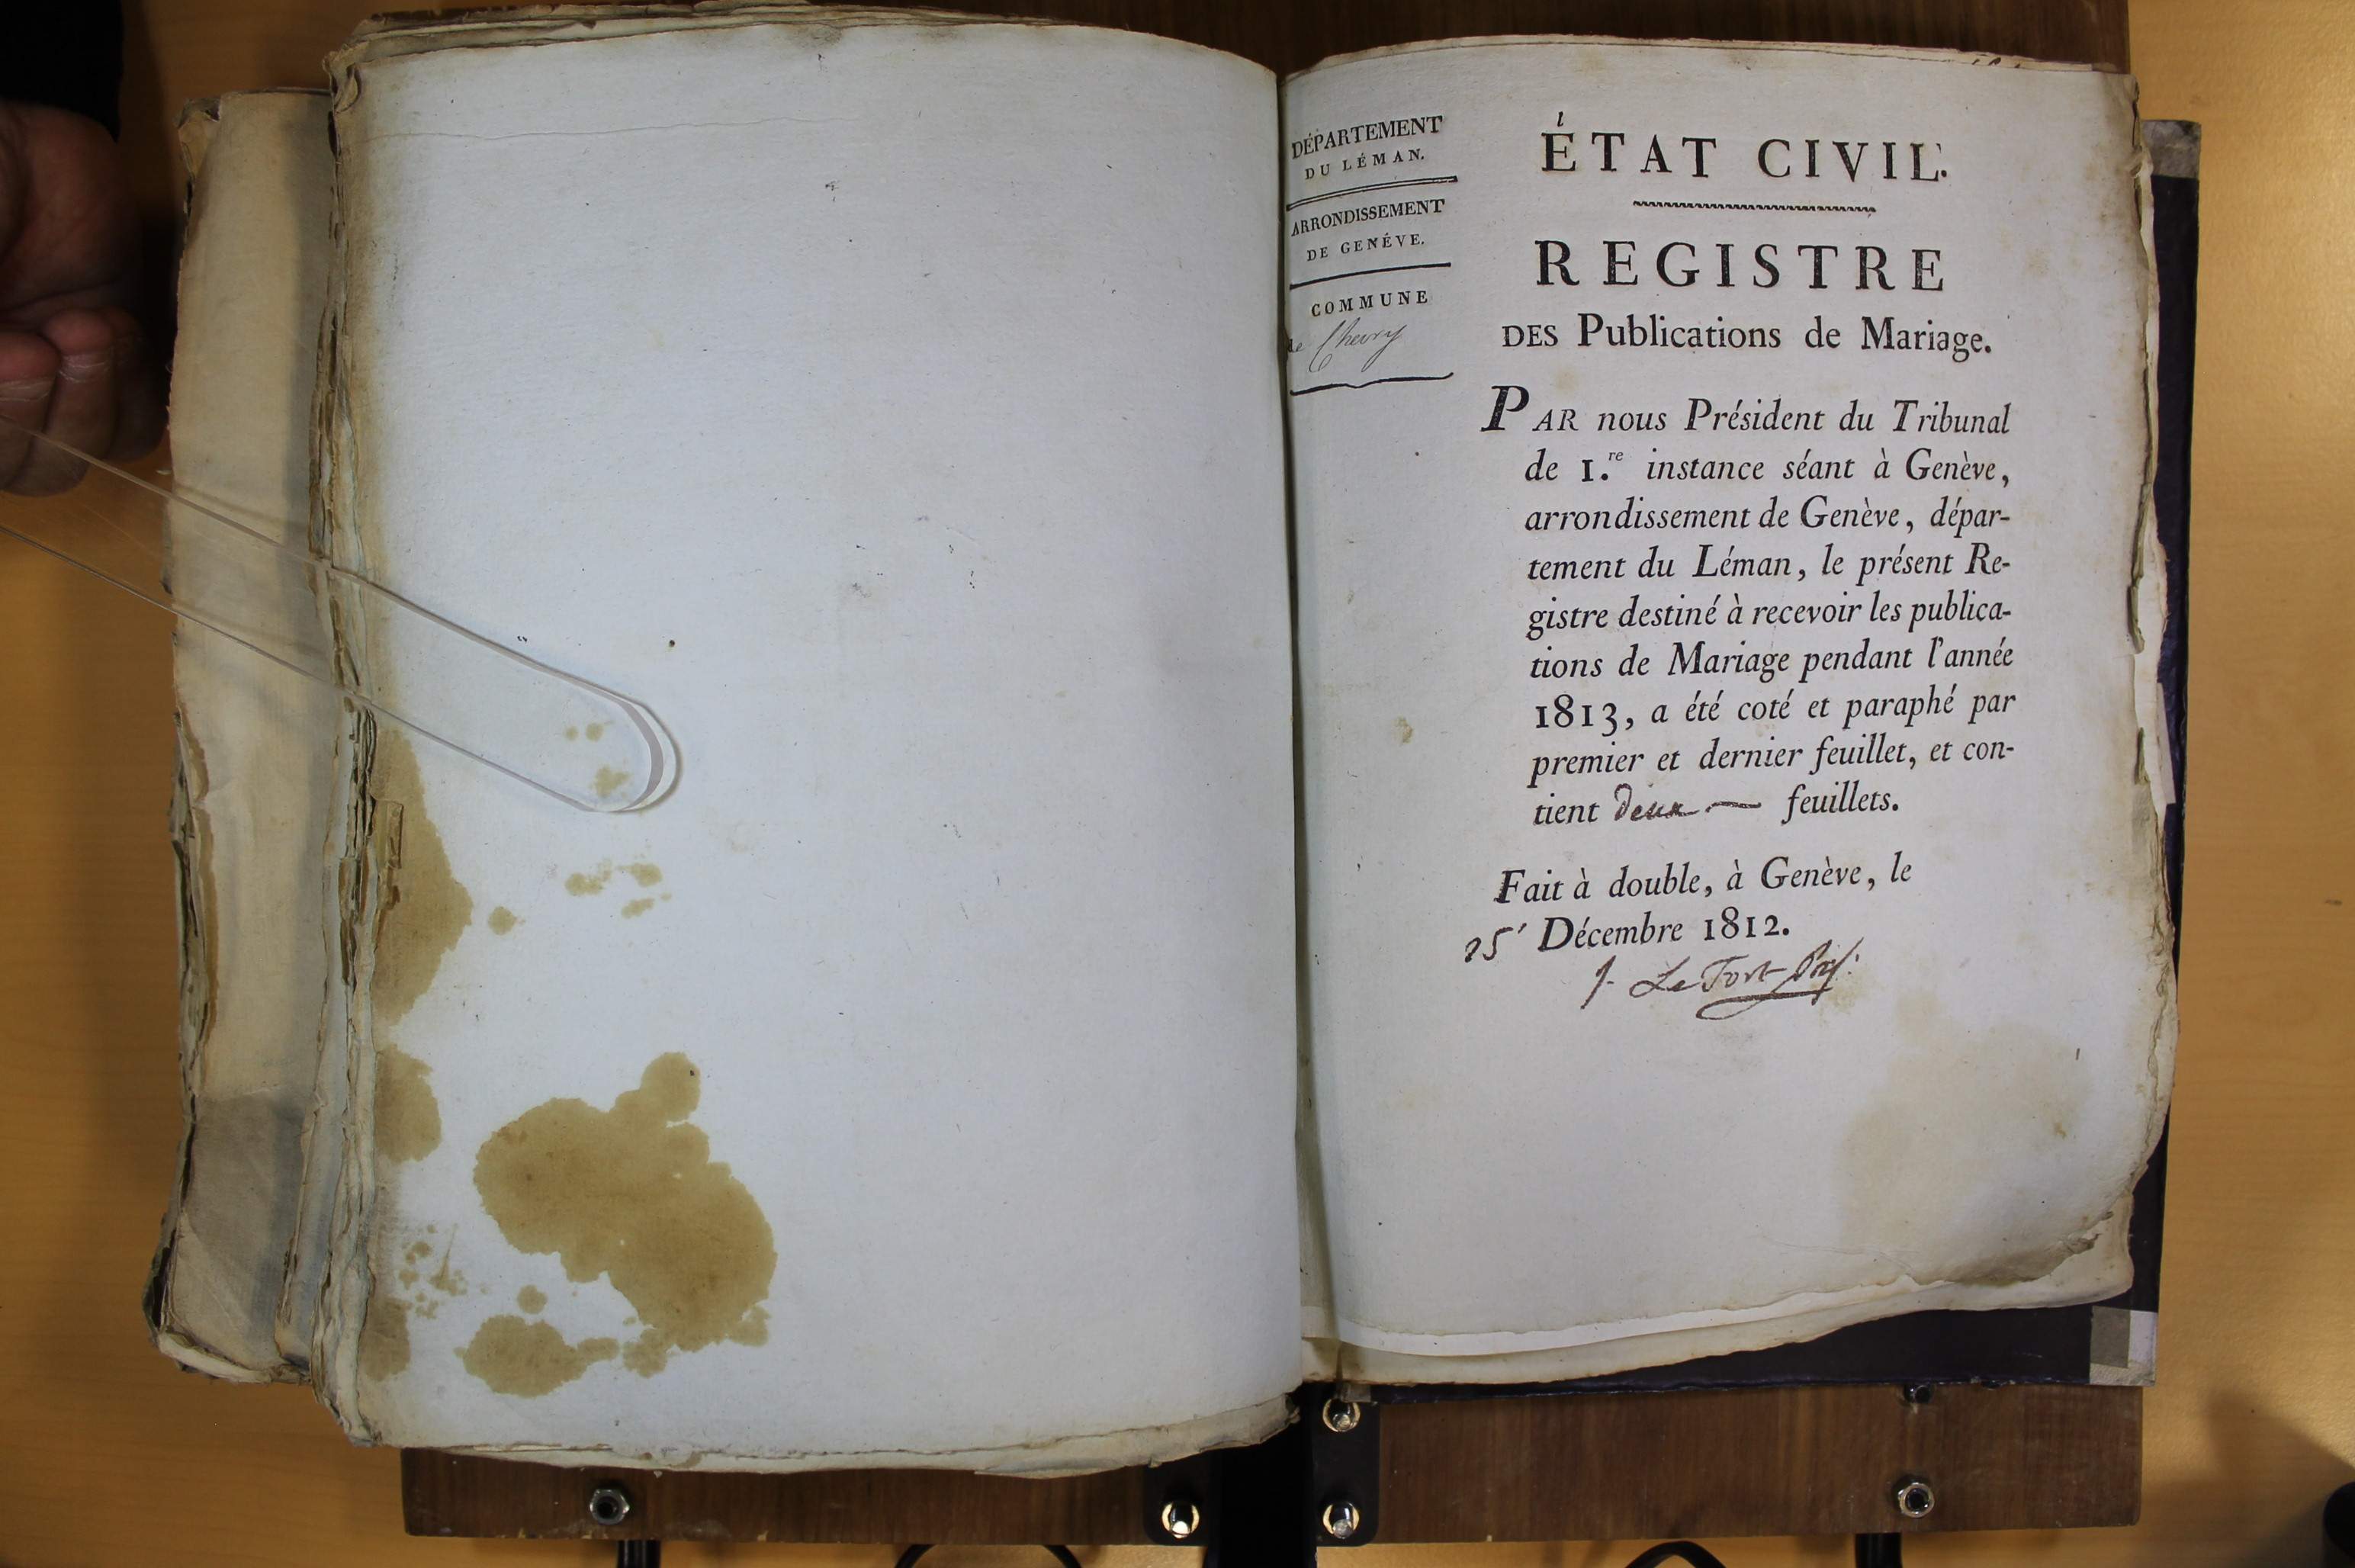 DÉPARTEMENT
DU LÉMAN.
ARRONDISSEMENT
DE GENÉVE.
COMMUNE
de Chevry
ÉTAT CIVIL.
REGISTRE
DES Publications de Mariage.
PAR nous Président du Tribunal
de 1.re instance séant à Genève,
arrondissement de Genève, dépar-
tement du Léman, le présent Re-
gistre destiné à recevoir les publica-
tions de Mariage pendant l'année
1813, a été coté et paraphé par
premier et dernier feuillet, et con-
tient deux — feuillets.
Fait à double, à Genève, le
25 Décembre 1812.
J. LeFort